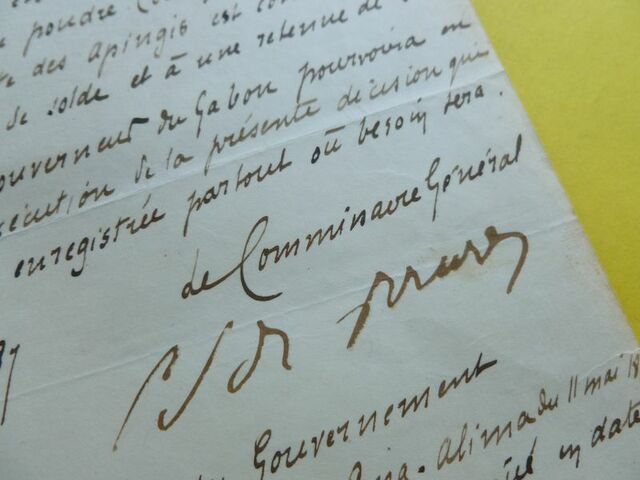 e poudre
des Apingis est con
de solde et à une retenue de
ouverneur du Gabon pourvoira en
écution de la présente décision qui
enregistrée partout où besoin sera.
de Commissaire Général
87
Gouvernement
Alima du 11 mai 18
en date